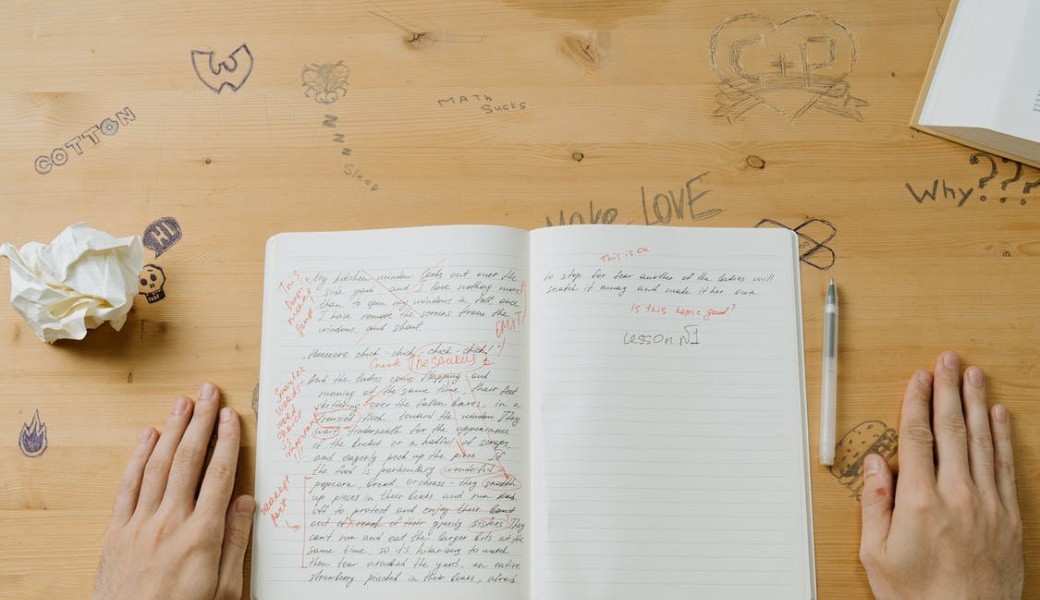 W
COTTON
zzz
Sleep
MATH
Sucks
G+P
Why???
HI
Make LOVE
My kitchen window looks out over the
side yard and I love nothing more
than to open my windows in fall, once
I have remove the screens from the
windows, and shout.
chick-chick-chick-chick!
EMIT
Check THESAURUS
And the ladies come flapping and
running at the same time, their feet
over the fallen leaves, in a
toward the window. They
wait underneath for the appearance
of the bucket or a handful of scraps,
and eagerly peck up the piece. If
the food is particulary wonderful
popcorn, bread, or cheese - they snatch
up pieces in their beaks and run
off to protect and enjoy their
out of reach of their greedy sisters. They
can't run and eat the larger bits at the
same time, so it's hilarious to watch
them tear around the yard, an entire
strawberry pinched in their beaks, afraid
this is a
to stop for fear another of the ladies will
snatch it away and make it her own
Is this topic good?
Lesson №1